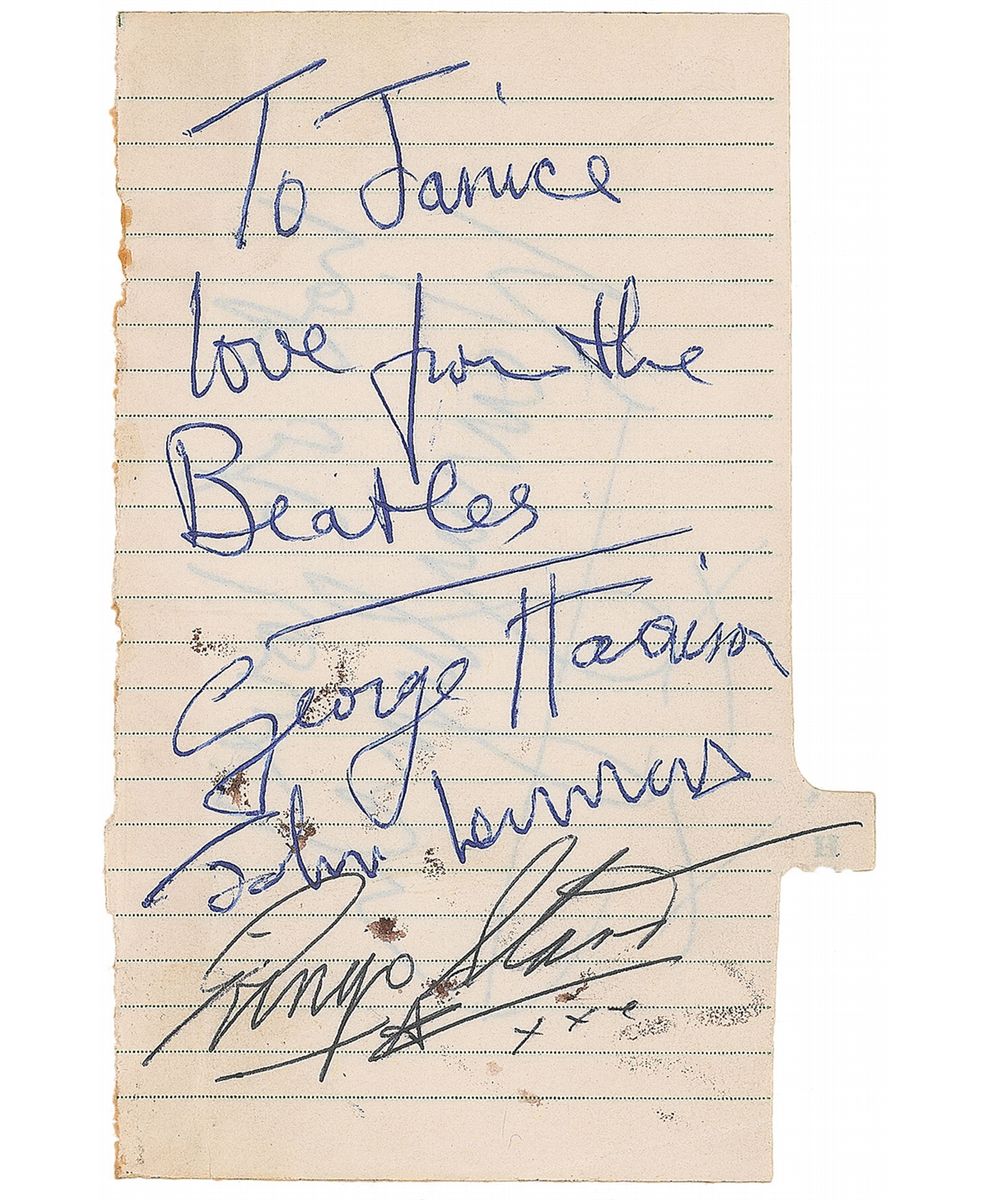 To Janice
love from the
Beatles
George Harrison
John Lennon
Ringo Starr
xxx
H